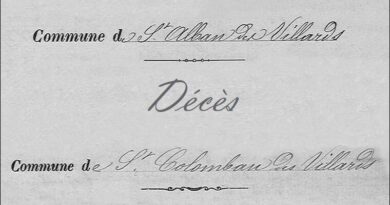 Commune de St Alban des Villards
Décès
Commune de St Colomban des Villards